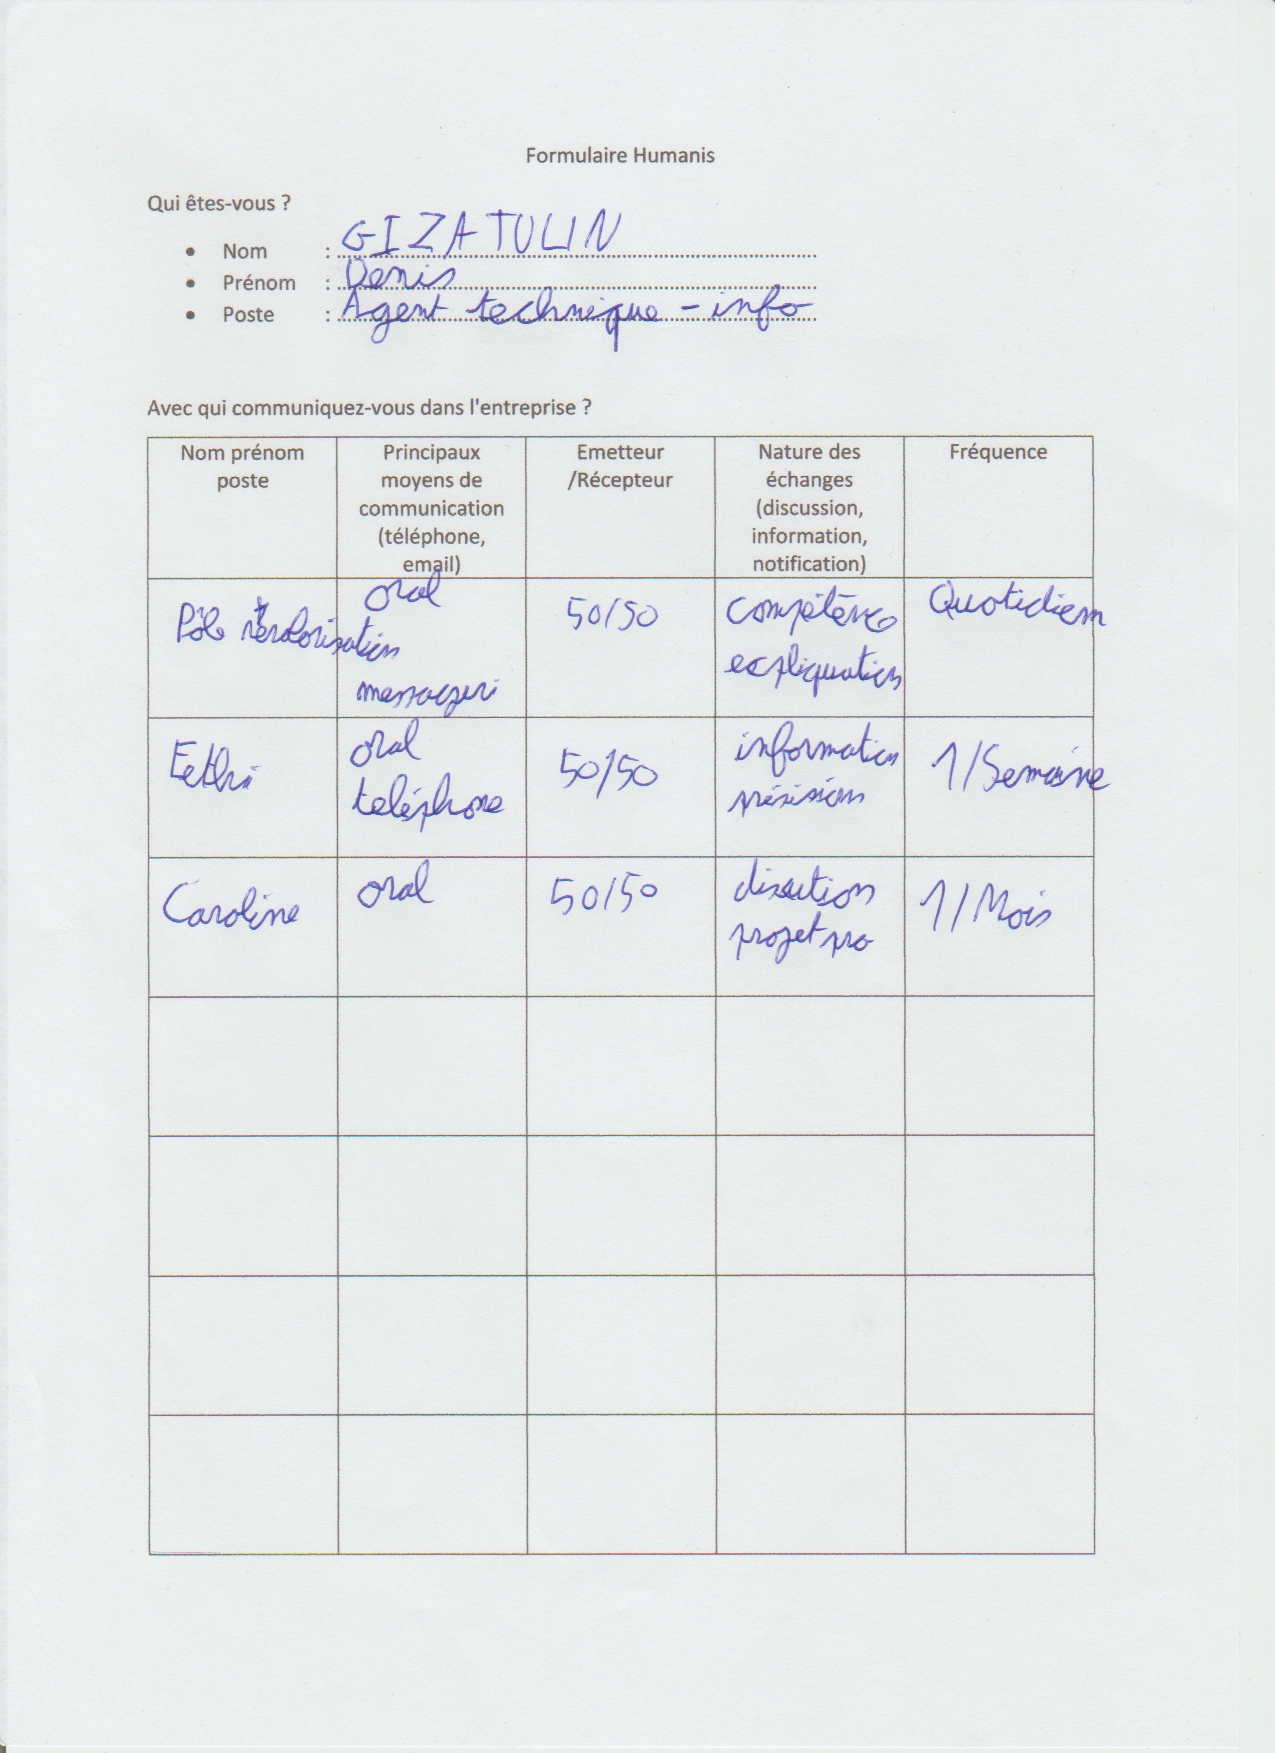 Formulaire Humanis
Qui êtes-vous ?
• Nom : GIZATULIN
• Prénom : Denis
• Poste : Agent technique - info
Avec qui communiquez-vous dans l'entreprise ?
Nom prénom
poste
Principaux
moyens de
communication
(téléphone,
email)
Emetteur
/Récepteur
Nature des
échanges
(discussion,
information,
notification)
Fréquence
Pôle
oral
messageri
50/50
compétence
expliquation
Quotidiem
Fethi
oral
teléphone
50/50
information
1/Semaine
Caroline
oral
50/50
projet pro
1/Mois